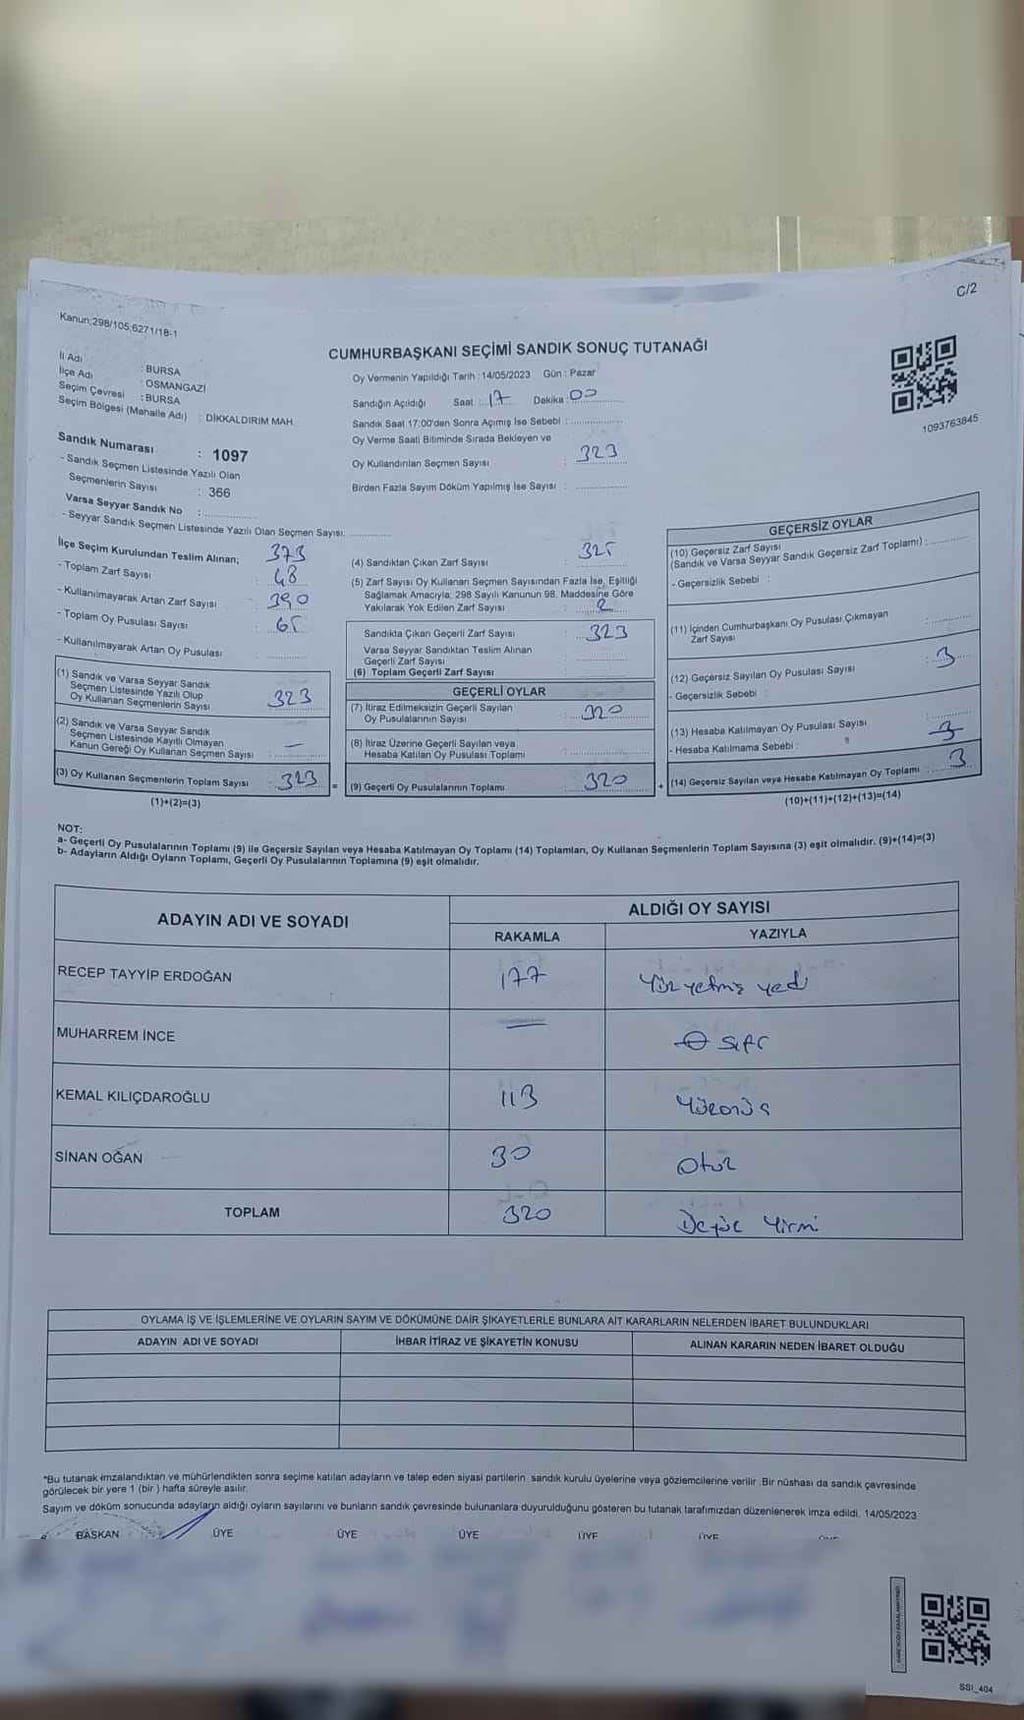 C/2
Kanun;298/105;6271/18-1
CUMHURBAŞKANI SEÇİMİ SANDIK SONUÇ TUTANAĞI
İl Adı : BURSA
İlçe Adı : OSMANGAZİ
Seçim Çevresi : BURSA
Seçim Bölgesi (Mahalle Adı) : DİKKALDIRIM MAH.
Oy Vermenin Yapıldığı Tarih : 14/05/2023 Gün : Pazar
Sandığın Açıldığı Saat : 17 Dakika : 00
Sandık Saat 17:00'den Sonra Açımış İse Sebebi :
Oy Verme Saati Bitiminde Sırada Bekleyen ve
Oy Kullandırılan Seçmen Sayısı : 323
Birden Fazla Sayım Döküm Yapılmış İse Sayısı :
1093763845
Sandık Numarası : 1097
- Sandık Seçmen Listesinde Yazılı Olan
Seçmenlerin Sayısı : 366
Varsa Seyyar Sandık No :
- Seyyar Sandık Seçmen Listesinde Yazılı Olan Seçmen Sayısı:
İlçe Seçim Kurulundan Teslim Alınan;
- Toplam Zarf Sayısı : 373
- Kullanılmayarak Artan Zarf Sayısı : 48
- Toplam Oy Pusulası Sayısı : 390
- Kullanılmayarak Artan Oy Pusulası : 65
(1) Sandık ve Varsa Seyyar Sandık
Seçmen Listesinde Yazılı Olup
Oy Kullanan Seçmenlerin Sayısı 323
(2) Sandık ve Varsa Seyyar Sandık
Seçmen Listesinde Kayıtlı Olmayan
Kanun Gereği Oy Kullanan Seçmen Sayısı : —
(3) Oy Kullanan Seçmenlerin Toplam Sayısı 323 =
(1)+(2)=(3)
(4) Sandıktan Çıkan Zarf Sayısı : 325
(5) Zarf Sayısı Oy Kullanan Seçmen Sayısından Fazla İse, Eşitliği
Sağlamak Amacıyla; 298 Sayılı Kanunun 98. Maddesine Göre
Yakılarak Yok Edilen Zarf Sayısı : 2
Sandıkta Çıkan Geçerli Zarf Sayısı : 323
Varsa Seyyar Sandıktan Teslim Alınan
Geçerli Zarf Sayısı
(6) Toplam Geçerli Zarf Sayısı
GEÇERLİ OYLAR
(7) İtiraz Edilmeksizin Geçerli Sayılan
Oy Pusulalarının Sayısı : 320
(8) İtiraz Üzerine Geçerli Sayılan veya
Hesaba Katılan Oy Pusulası Toplamı
(9) Geçerli Oy Pusulalarının Toplamı : 320 +
GEÇERSİZ OYLAR
(10) Geçersiz Zarf Sayısı
(Sandık ve Varsa Seyyar Sandık Geçersiz Zarf Toplamı) :
- Geçersizlik Sebebi :
(11) İçinden Cumhurbaşkanı Oy Pusulası Çıkmayan
Zarf Sayısı
(12) Geçersiz Sayılan Oy Pusulası Sayısı : 3
- Geçersizlik Sebebi :
(13) Hesaba Katılmayan Oy Pusulası Sayısı
- Hesaba Katılmama Sebebi :
(14) Geçersiz Sayılan veya Hesaba Katılmayan Oy Toplamı : 3
(10)+(11)+(12)+(13)=(14)
NOT:
a- Geçerli Oy Pusulalarının Toplamı (9) ile Geçersiz Sayılan veya Hesaba Katılmayan Oy Toplamı (14) Toplamları, Oy Kullanan Seçmenlerin Toplam Sayısına (3) eşit olmalıdır. (9)+(14)=(3)
b- Adayların Aldığı Oyların Toplamı, Geçerli Oy Pusulalarının Toplamına (9) eşit olmalıdır.
ADAYIN ADI VE SOYADI
ALDIĞI OY SAYISI
RAKAMLA YAZIYLA
RECEP TAYYİP ERDOĞAN 177 Yüz yetmiş yedi
MUHARREM İNCE — 0 sıfır
KEMAL KILIÇDAROĞLU 113 Yüzonüç
SİNAN OĞAN 30 Otuz
TOPLAM 320 Üçyüz Yirmi
OYLAMA İŞ VE İŞLEMLERİNE VE OYLARIN SAYIM VE DÖKÜMÜNE DAİR ŞİKAYETLERLE BUNLARA AİT KARARLARIN NELERDEN İBARET BULUNDUKLARI
ADAYIN ADI VE SOYADI İHBAR İTİRAZ VE ŞİKAYETİN KONUSU ALINAN KARARIN NEDEN İBARET OLDUĞU
*Bu tutanak imzalandıktan ve mühürlendikten sonra seçime katılan adayların ve talep eden siyasi partilerin sandık kurulu üyelerine veya gözlemcilerine verilir. Bir nüshası da sandık çevresinde
görülecek bir yere 1 (bir ) hafta süreyle asılır.
Sayım ve döküm sonucunda adayların aldığı oyların sayılarını ve bunların sandık çevresinde bulunanlara duyurulduğunu gösteren bu tutanak tarafımızdan düzenlenerek imza edildi. 14/05/2023
BAŞKAN ÜYE ÜYE ÜYE ÜYE ÜYE
SSI_404